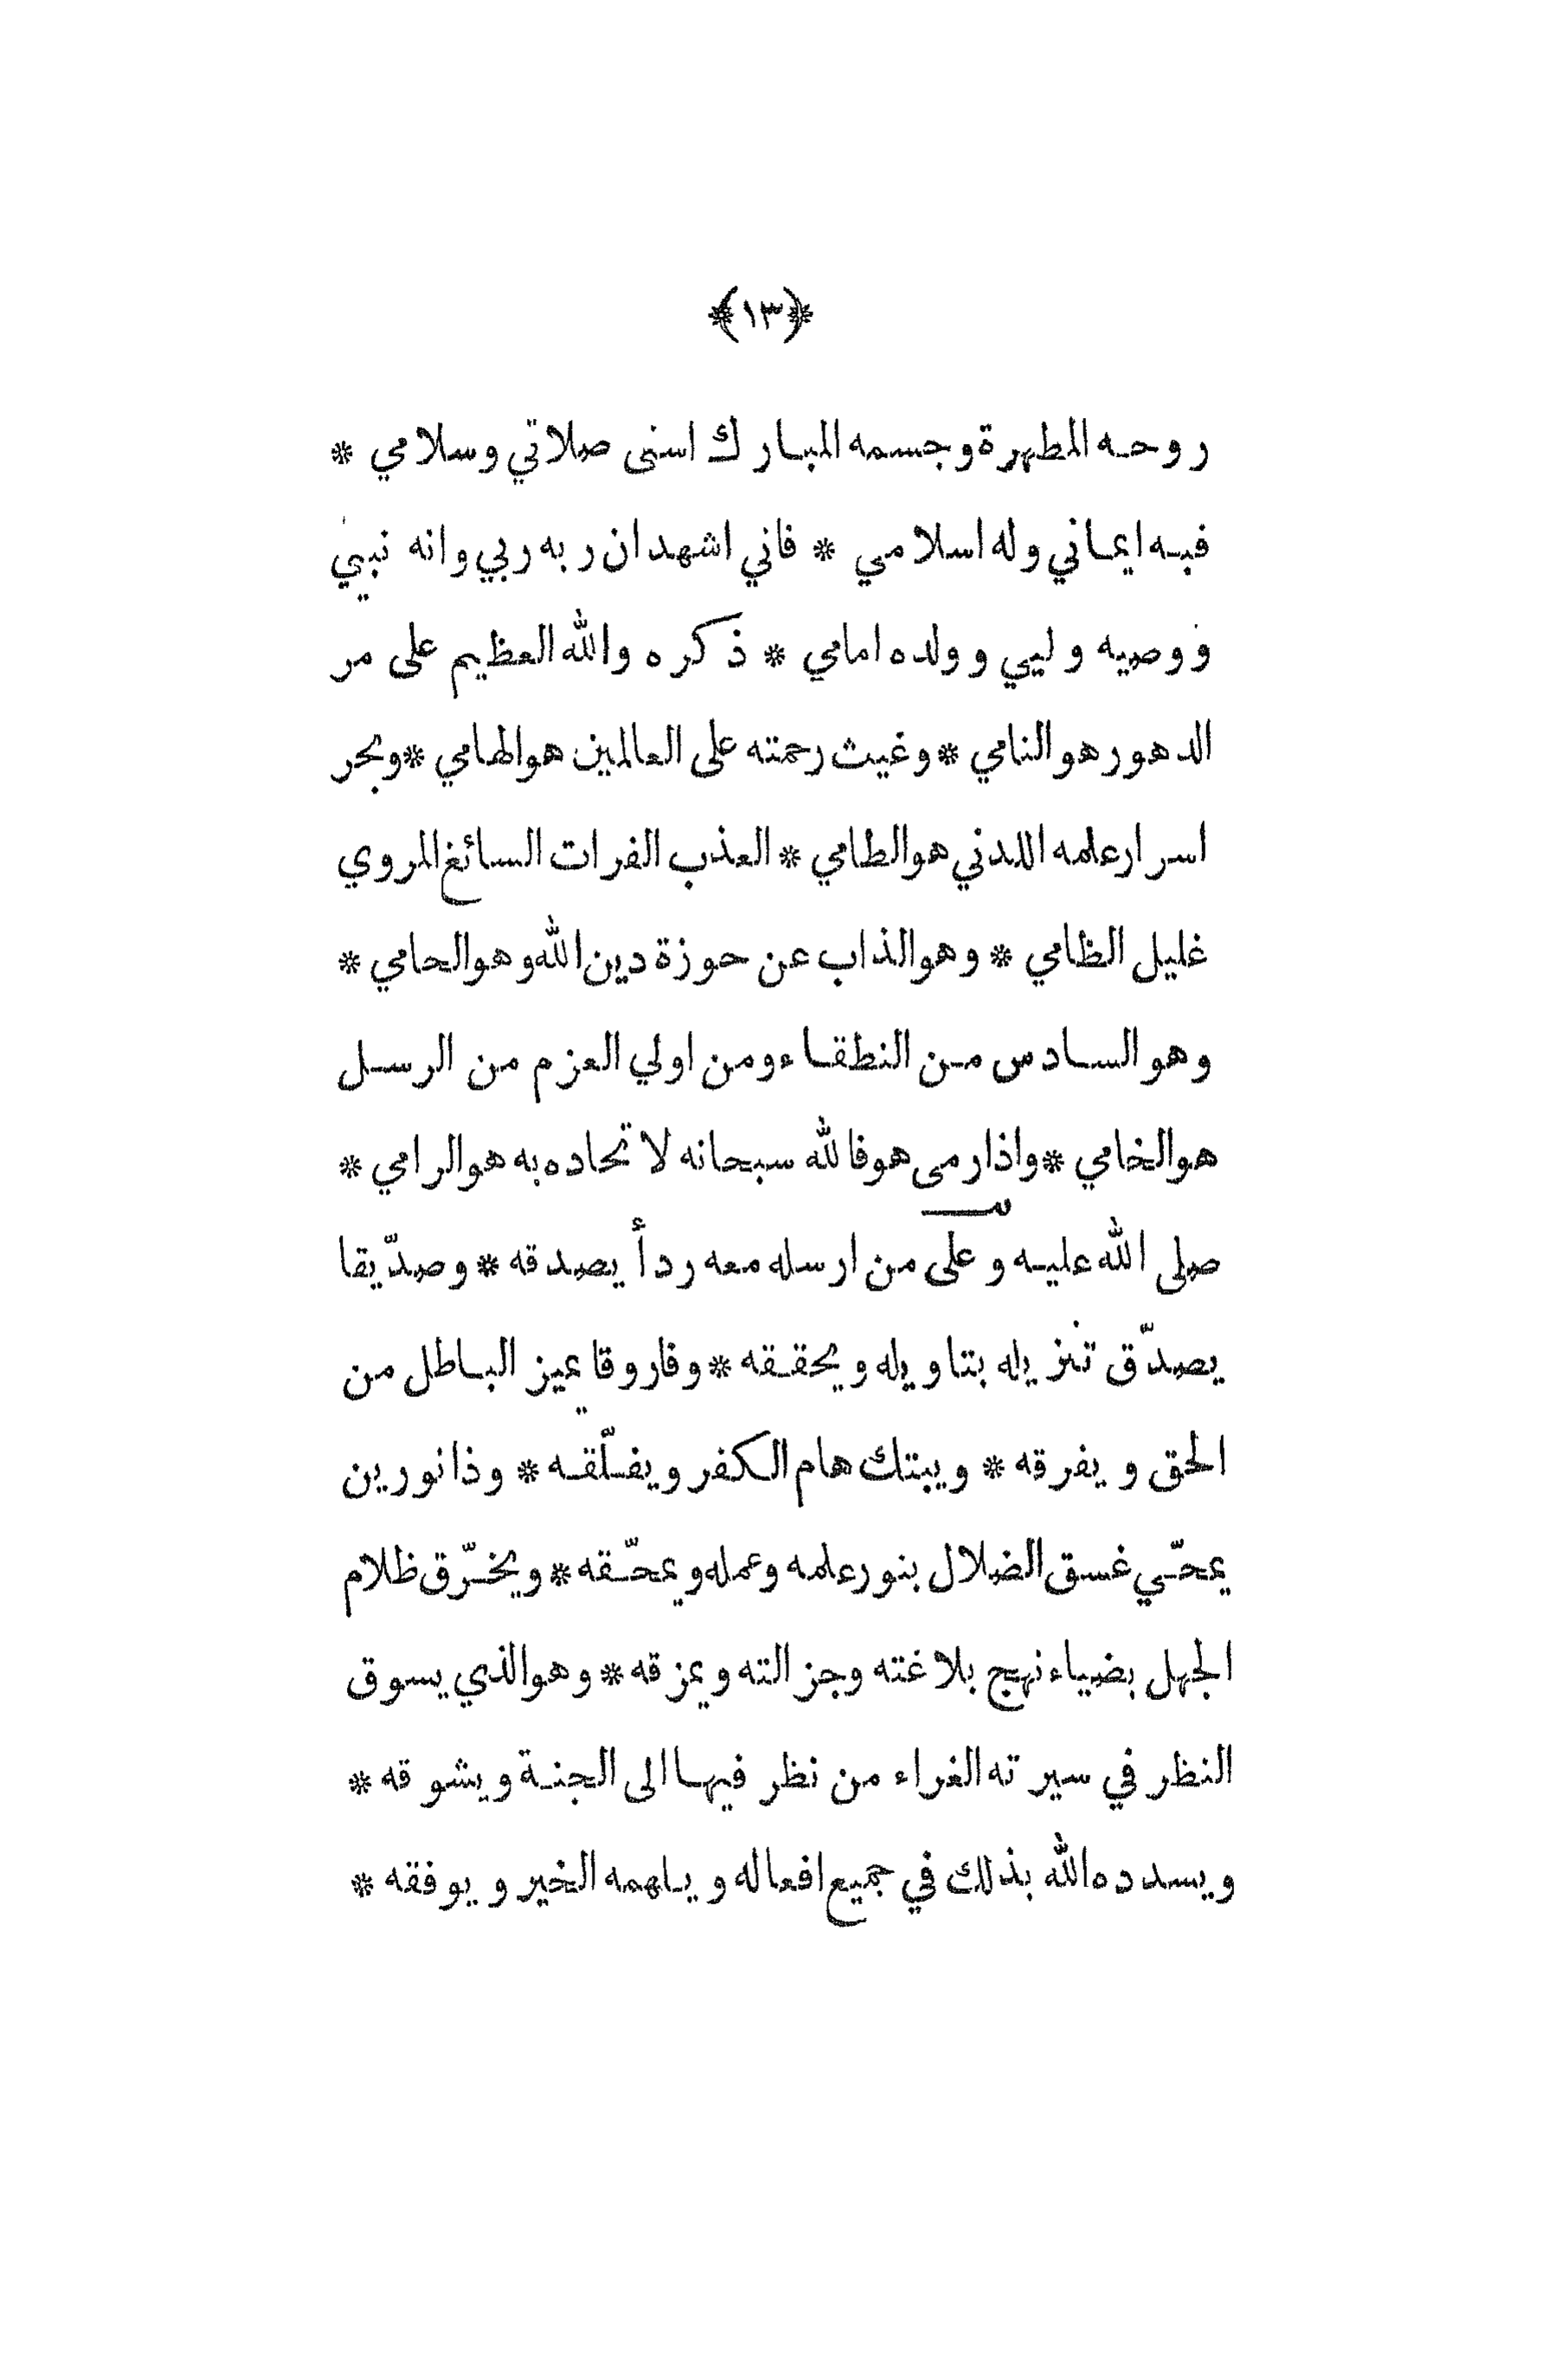 ﴿١٣﴾
روحه المطهرة وجسمه المبارك اسنى صلاتي وسلامي *
فبه ايماني وله اسلامي * فاني اشهد ان ربه ربي وانه نبيي
ووصيه وليي وولده امامي * ذكره والله العظيم على مر
الدهور هو النامي * وغيث رحمته على العالمين هو الهامي * وبحر
اسرار علمه اللدني هو الطامي * العذب الفرات السائغ المروي
غليل الظامي * وهو الذاب عن حوزة دين الله وهو الحامي *
وهو السادس من النطقاء ومن اولي العزم من الرسل
هو الخامي * واذا رمى هو فالله سبحانه لاتحاده به هو الرامي *
صلى الله عليه وعلى من ارسله معه ردأ يصدقه * وصدّيقا
يصدّق تنزيله بتاويله ويحققه * وفاروقا يميز الباطل من
الحق ويفرقه * ويبتك هام الكفر ويفلّقه * وذا نورين
يمحّي غسق الضلال بنور علمه وعمله ويمحّقه * ويخرّق ظلام
الجهل بضياء نهج بلاغته وجزالته ويمزقه * وهو الذي يسوق
النظر في سيرته الغراء من نظر فيها الى الجنة ويشوقه *
ويسدده الله بذلك في جميع افعاله ويلهمه الخير ويوفقه *